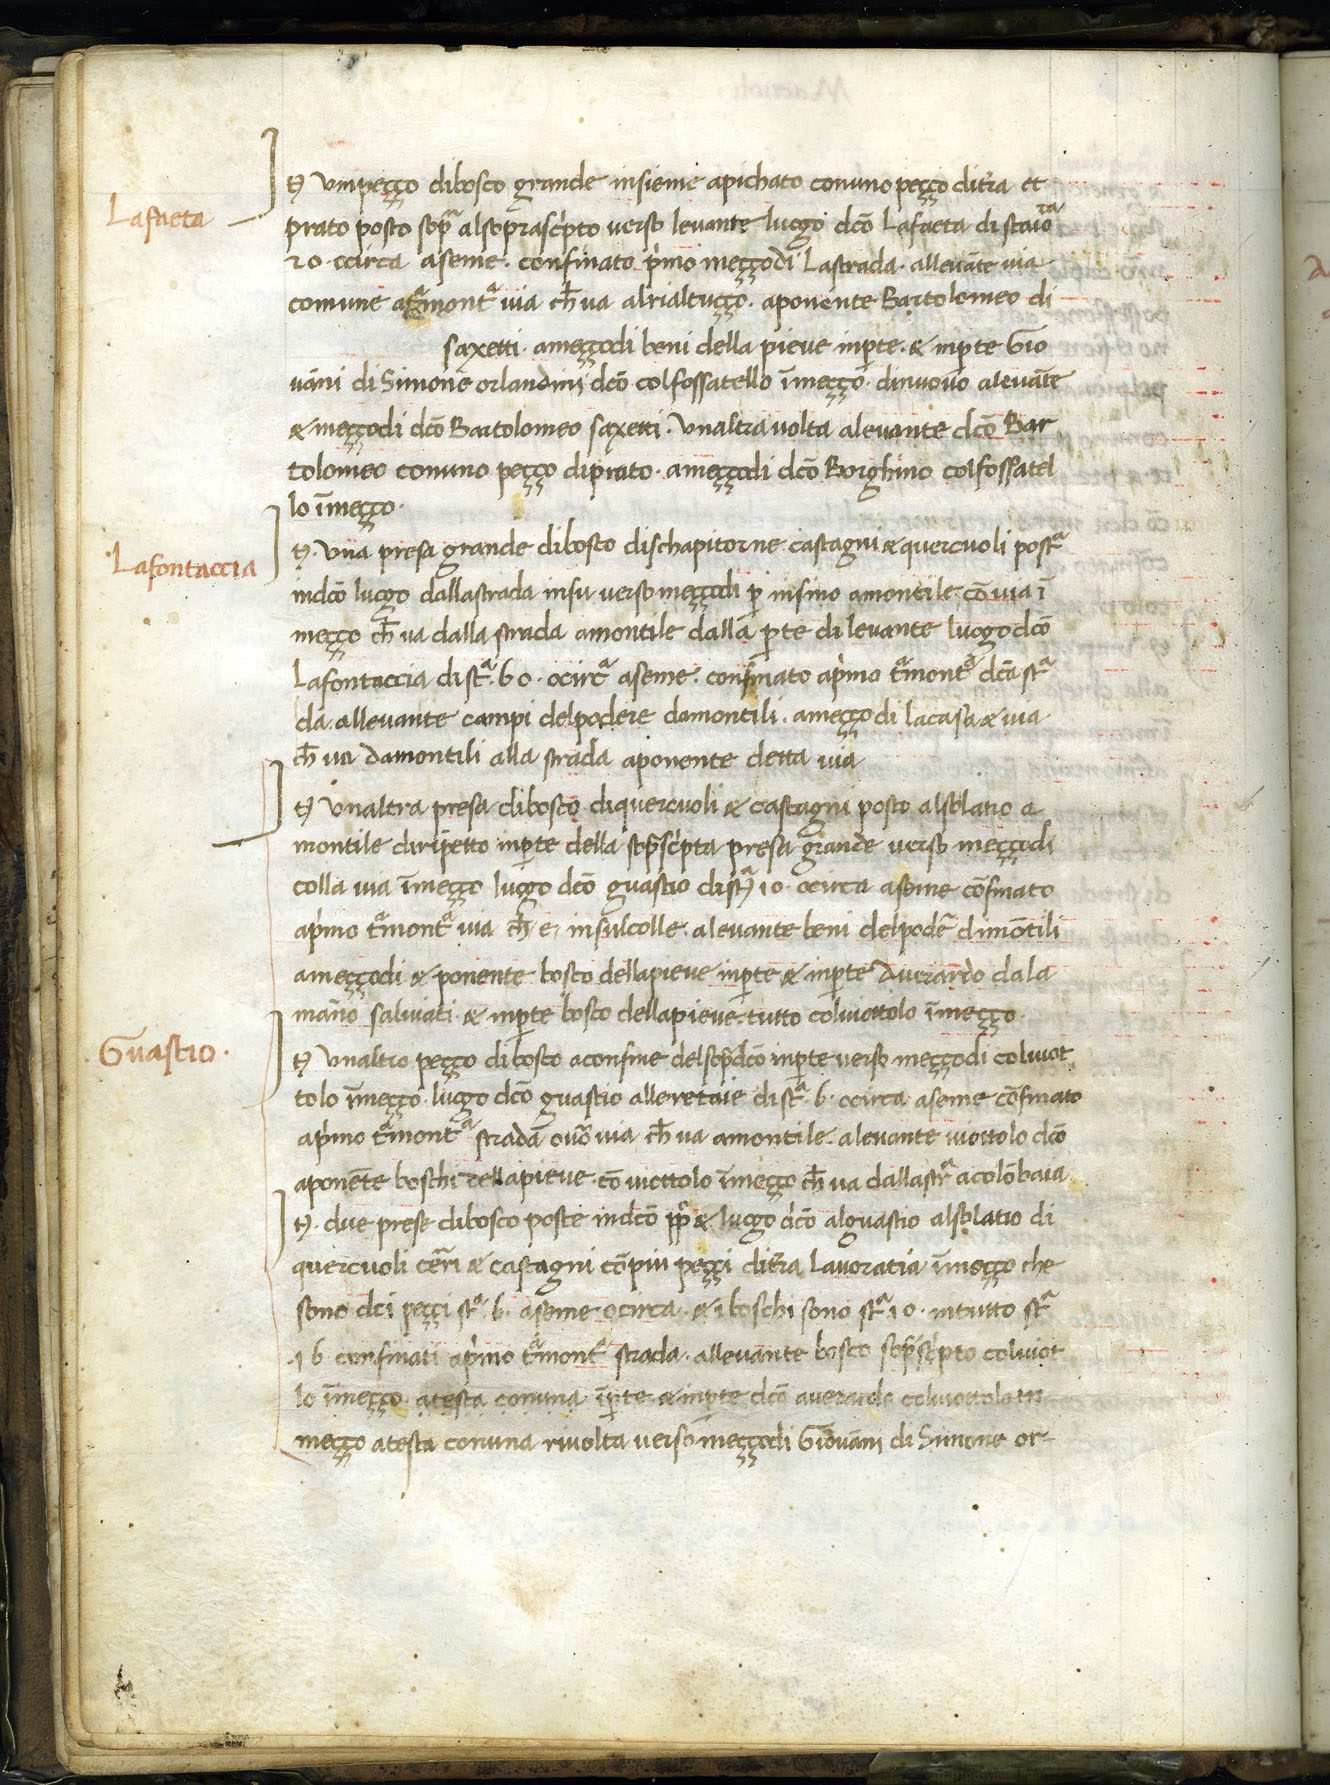 Macuoli
Ħ Vmpeççο dibosco grande insieme apichato conuno peççο ditr̄a et
Lafaeta
prato posto sop̄ alsoprascripto verso levante luogo dcō Lafaeta di staiora
20 · ocirca aseme · confinato p̄mo meççodi Lastrada · allevāte via
comune at̄ramont̄a via ch̄ va alrialtuççο · aponente Bartolomeo di
saxetti · ameççodi beni della pieve inp̄te · & inp̄te Gio
vāni di Simone orlandini dcō colfossatello īmeççο · dinuovo alevāte
& meççodi dcō Bartolomeo saxetti · Vnaltra volta alevante dcō Bar
tolomeo conuno peççο diprato · ameççodi dcō Borghino colfossatel
lo īmeççο ·
Ħ · Vna presa grande dibosco dischapitorne castagni & quercuoli post̄a
Lafontaccia
indcō luogo dallastrada insu verso meççodi p̄ insino amontile · cō via ī
meççο ch̄ va dalla strada amontile dalla p̄te di levante luogo dcō
Lafontaccia di st̄a · 60 · ocirc̄a aseme · confinato ap̄mo t̄ramont̄a dcā st̄ra
da · allevante campi delpodere damontili · ameççodi lacasa & via
ch̄ va damontili alla strada aponente detta via
Ħ Vnaltra presa dibosco diquercuoli & castagni posto alsolatio a
montile diripetto inp̄te della sop̄scripta presa grande verso meççodi
colla via īmeççο luogo dcō guastio di st̄a 10 · ocirca aseme cōfinato
ap̄mo t̄ramont̄a via ch̄ · e · insulcolle · alevante beni delpoder̄ dimōtili
ameççodi & ponente bosco dellapieve inp̄te & inp̄te Averardo dala
māno salviati · & inp̄te bosco dellapieve · tutto colviottolo īmeççο ·
· Guastio ·
Ħ Vnaltro peççο dibosco aconfine delsop̄dcō inp̄te verso meççodi colviot
tolo īmeççο · luogo dcō guastio alleretaie di st̄a · 6 · ocirca aseme cōfinato
ap̄mo t̄ramont̄a stradā ov̄o via ch̄ va amontile · alevante viottolo dcō
aponēte boschi dellapieve · cō viottolo īmeççο ch̄ va dallastr̄a acolōbaia
Ħ · due prese dibosco poste indcō pp̄o & luogo dcō alguastio alsolatio di
quercuoli cer̄ri & castagni cōpiu peççi ditr̄a Lavoratia īmeççο che
sono dci peççi st̄a · 6 · aseme ocirca · & i boschi sono st̄a 10 · intutto st̄a
· 16 confinati ap̄mo t̄ramont̄a strada · allevante bosco sop̄scripto colviot
lo īmeççο · atesta conuna īp̄te · & inp̄te dcō averardo colviottolo in
meççο atesta conuna rivolta verso meççodi Giovāni di Simone or-